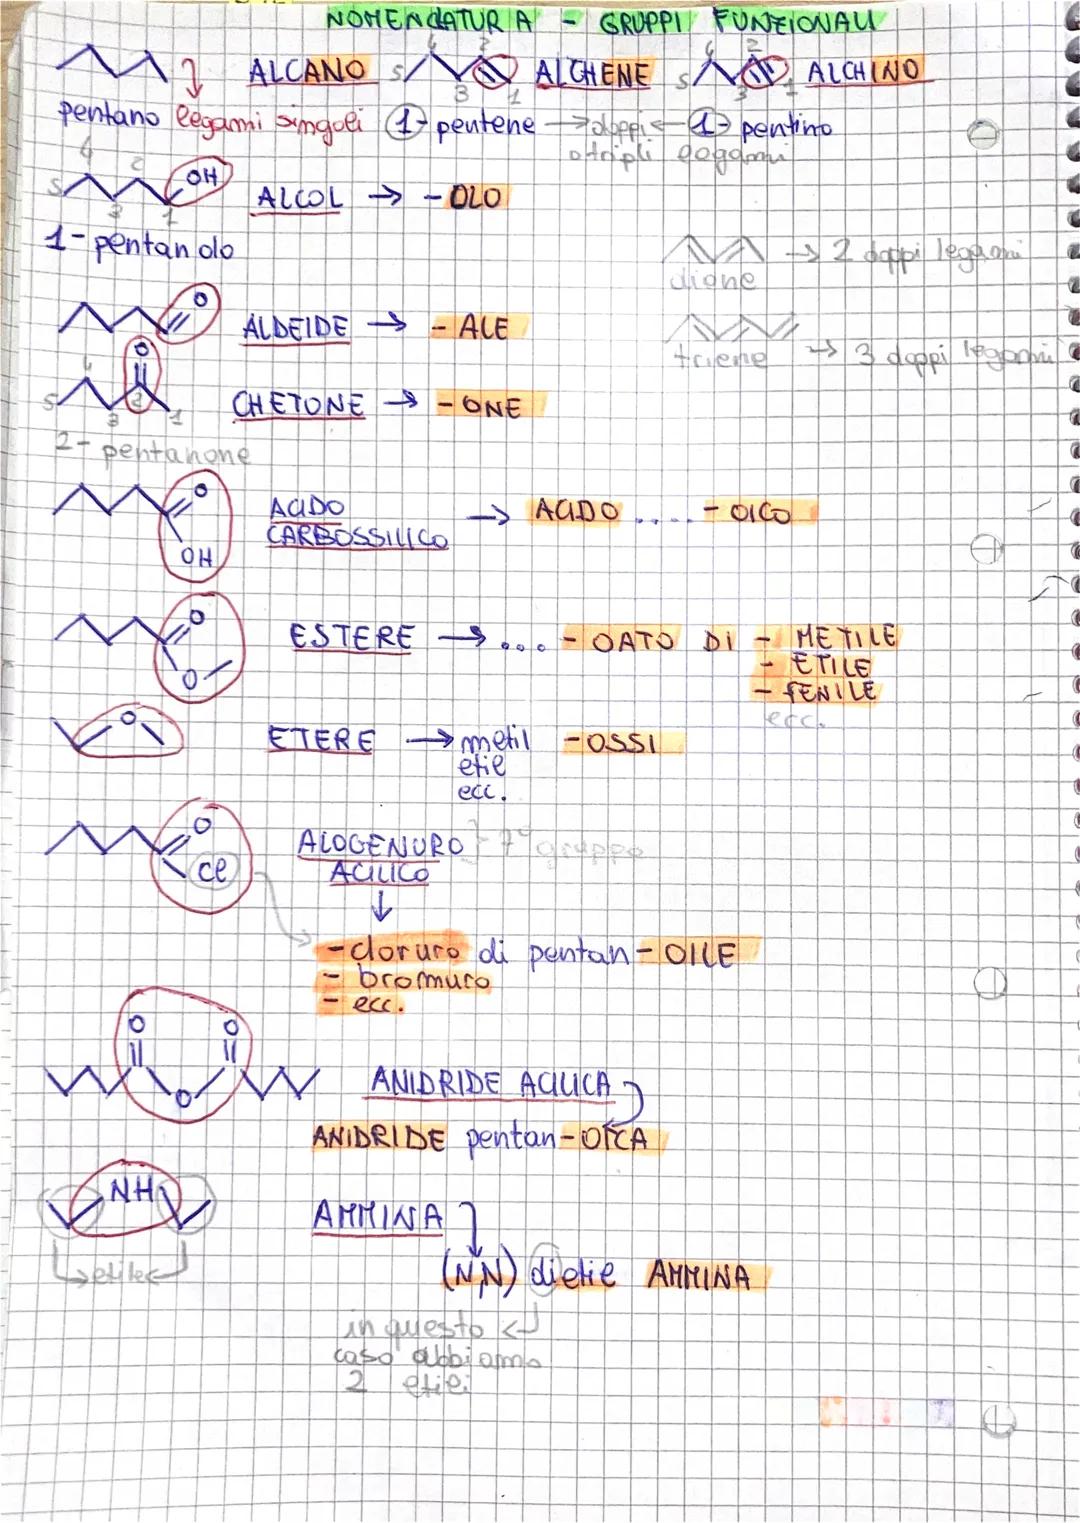 NOMENCLATURA - GRUPPI FUNZIONALI
ALCANO
5 4 3 2 1 ALCHENE
5 4 3 2 1 ALCHINO
pentano legami singoli 1-pentene → doppi ← 1-pentino
o tripli legami
5 4 3 2 1 OH
ALCOL → -OLO
1-pentanolo
→ 2 doppi legami
diene
O
ALDEIDE → -ALE
triene → 3 doppi legami
O
5 4 3 2 1
CHETONE → -ONE
2-pentanone
O
OH
ACIDO
CARBOSSILICO → ACIDO .... -OICO
O
O
ESTERE → ... -OATO DI - METILE
- ETILE
- FENILE
ecc.
O
ETERE → metil -OSSI
etil
ecc.
O
Cl
ALOGENURO } 7° gruppo
ACILICO
↓
- cloruro di pentan-OILE
- bromuro
- ecc.
O O
O
ANIDRIDE ACILICA
ANIDRIDE pentan-OICA
NH
AMMINA
etile
(N,N) dietil AMMINA
in questo
caso abbiamo
2 etili